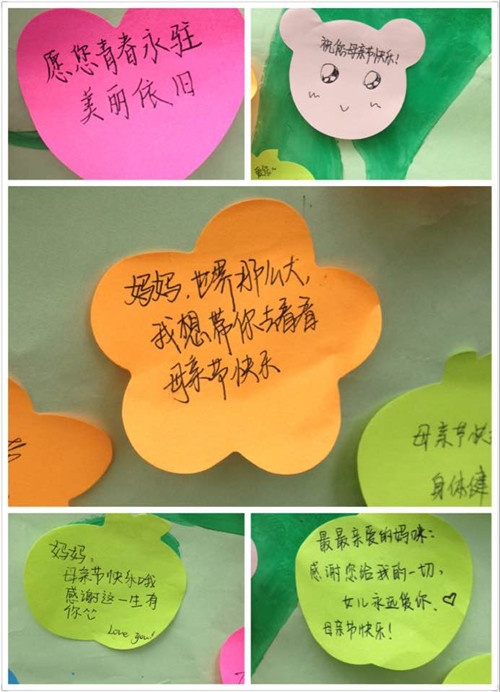 愿您青春永驻
美丽依旧
祝您母亲节快乐!
妈妈,世界那么大,
我想带你去看看
母亲节快乐
母亲节快
身体健
妈妈,
母亲节快乐哦
感谢这一生有
你^^
Love you!
最最亲爱的妈咪:
感谢您给我的一切,
女儿永远爱你.♡
母亲节快乐!